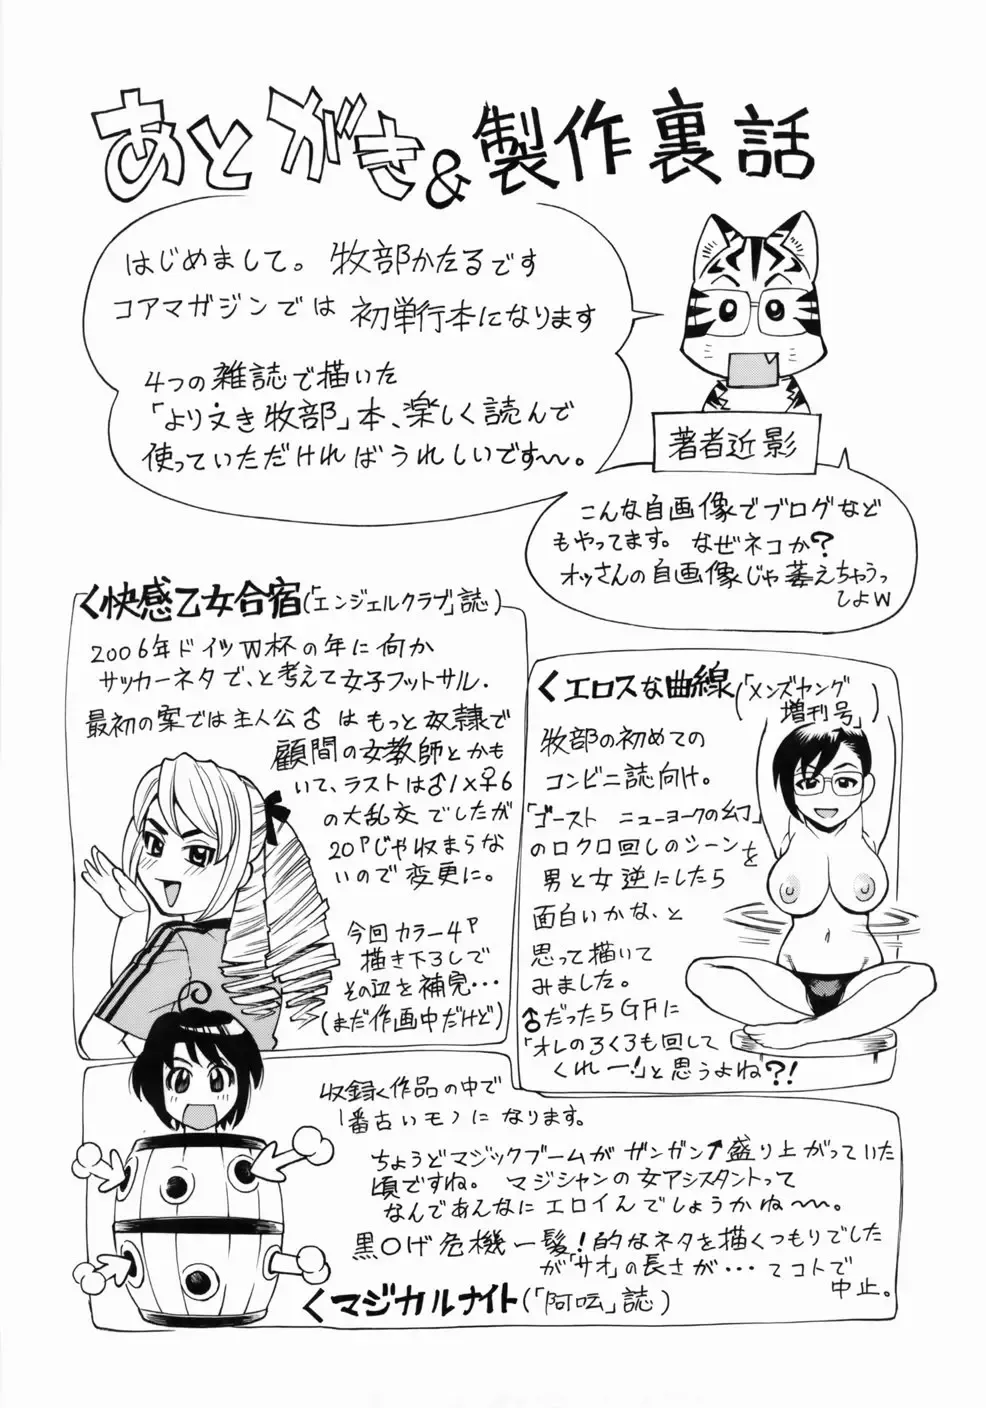 あとがき&製作裏話
はじめまして。牧部かたるです
コアマガジンでは初単行本になります
4つの雑誌で描いた
「より文き牧部」本、楽しく読んで
使っていただければうれしいです〜。
著者近影
こんな自画像でブログなど
もやってます。なぜネコか?
オッさんの自画像じゃ萎えちゃうっ
しょw
く快感乙女合宿(「エンジェルクラブ」誌)
2006年ドイツW杯の年に何か
サッカーネタで、と考えて女子フットサル.
最初の案では主人公♂はもっと奴隷で
顧問の女教師とかも
いて、ラストは♂1×♀6
の大乱交でしたが
20Pじゃ収まらな
いので変更に。
今回カラー4P
描き下ろしで
その辺を補完・・・
(まだ作画中だけど)
くエロスな曲線(「メンズヤング
増刊号」)
牧部の初めての
コンビニ誌向け。
「ゴースト ニューヨークの幻」
のロクロ回しのシーンを
男と女逆にしたら
面白いかな、と
思って描いて
みました。
♂だったらGFに
「オレのろくろも回して
くれー!」と思うよね?!
収録く作品の中で
1番古いモノになります。
ちょうどマジックブームがガンガン↑盛り上がっていた
頃ですね。マジシャンの女アシスタントって
なんであんなにエロイんでしょうかね〜〜。
黒〇げ危機一髪!的なネタを描くつもりでした
が「サオ」の長さが・・・てコトで
中止。
くマジカルナイト(「阿吽」誌)